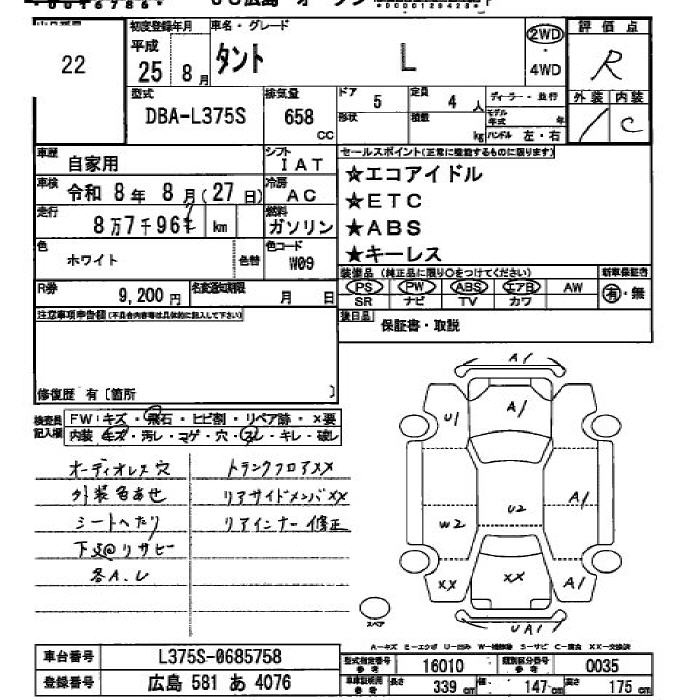 22
初度登録年月
平成
25 8月
車名・グレード
タント L
2WD
4WD
評価点
R
外装 内装
C
型式
DBA-L375S
排気量
658
cc
ドア 5
定員 4 人
形状
積載 kg
ディーラー・並行
モデル年式 年
ハンドル 左・右
車歴
自家用
シフト
IAT
車検
令和 8年 8月(27日)
冷房
AC
走行
8万7千96 km
燃料
ガソリン
色
ホワイト
色替
色コード
W09
セールスポイント(正常に稼動するものに限ります)
☆エコアイドル
★ETC
★ABS
★キーレス
装備品(純正品に限り○をつけてください)
新車保証書
PS PW ABS エアB AW
SR ナビ TV カワ
有・無
R券
9,200円
名変通知期限
月 日
後日品
保証書・取説
注意事項申告欄(不具合内容等は具体的に記入して下さい)
修復歴 有〔箇所 〕
検査員記入欄
FW:キズ・飛石・ヒビ割・リペア跡・×要
内装 キズ・汚レ・コゲ・穴・スレ・キレ・破レ
オーディオレス穴
外装色あせ
シートへたり
下廻リサビ
各A.U
トランクフロアXX
リアサイドメンバXX
リアインナー修正
A1
U1
A1
U2
A1
W2
XX
XX
A1
UA1
スペア
A-キズ E-エクボ U-凹み W-補修跡 S-サビ C-腐食 XX-交換済
車台番号
L375S-0685758
登録番号
広島 581 あ 4076
型式指定番号
参考
16010
類別区分番号
参考
0035
車庫証明用
参考
長さ
339 cm
幅
147 cm
高さ
175 cm